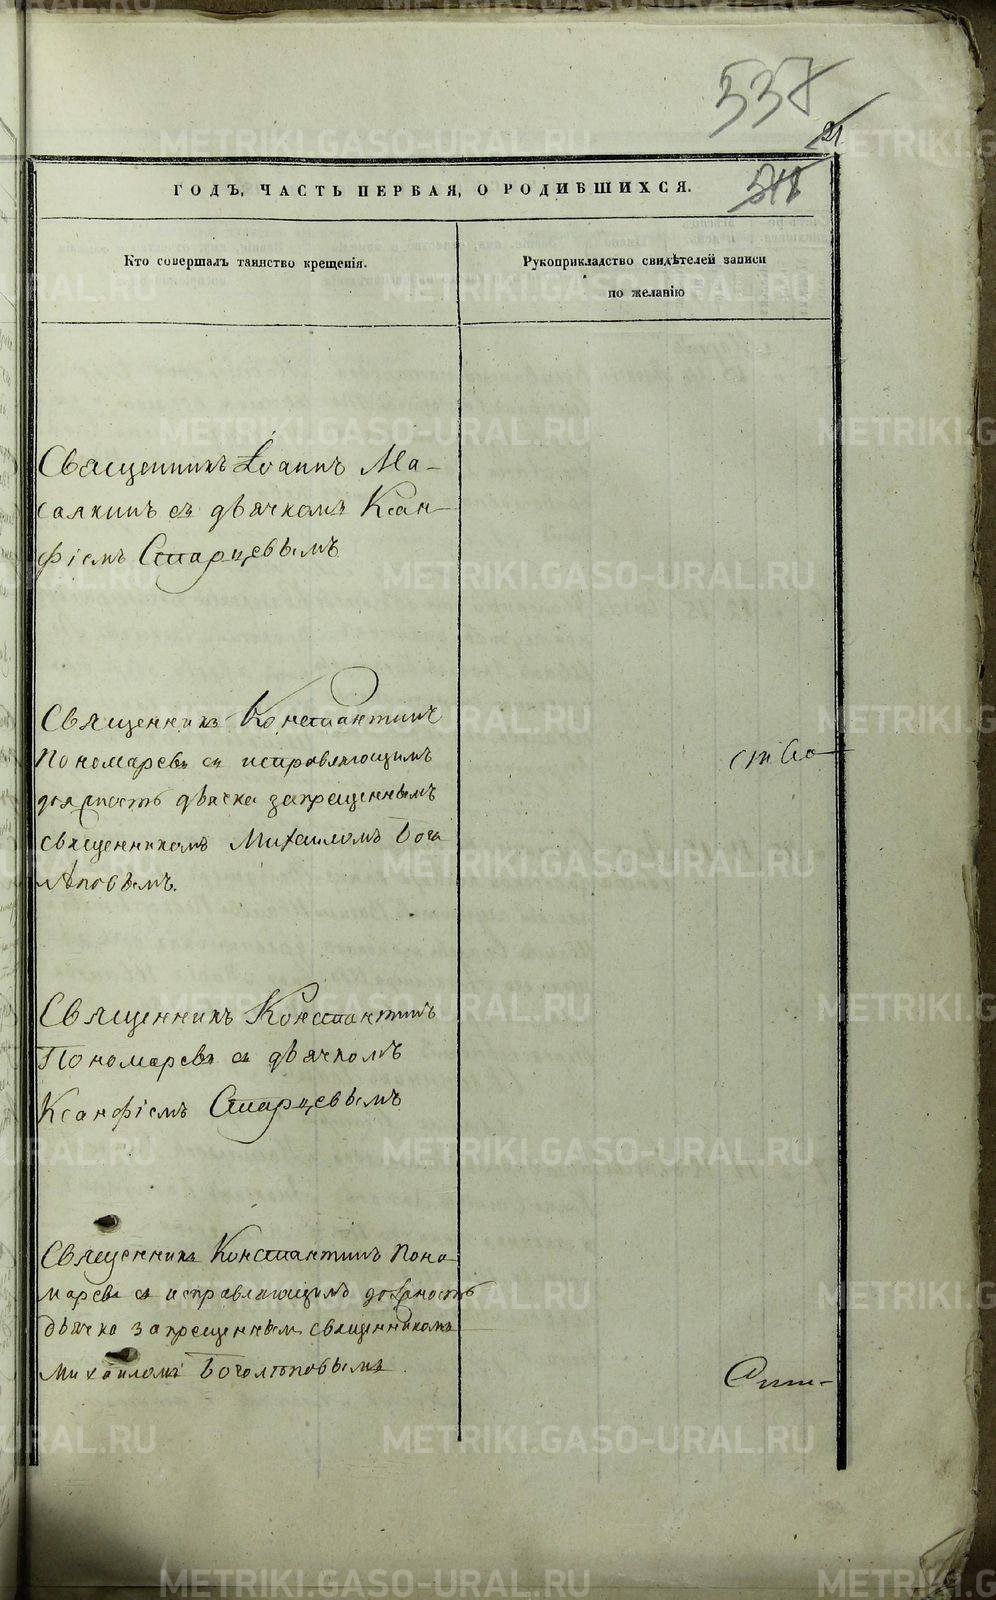 537
21
ГОДЪ, ЧАСТЬ ПЕРВАЯ, О РОДИВШИХСЯ.
Кто совершалъ таинство крещенія.
Рукоприкладство свидѣтелей записи
по желанію
Священникъ Іоаннъ Ма-
сопкинъ съ дьячкомъ Ксан-
фіемъ Старцевымъ
Священникъ Константинъ
Пономаревъ съ исправляющимъ
должность дьячка запрещеннымъ
священникомъ Михаиломъ Бого
лѣповымъ.
ство
Священникъ Константинъ
Пономаревъ съ дьячкомъ
Ксанфіемъ Старцевымъ
Священникъ Константинъ Поно
маревъ съ исправляющимъ должность
дьячка запрещеннымъ священникомъ
Михаиломъ Боголѣповымъ.
METRIKI.GASO-URAL.RU